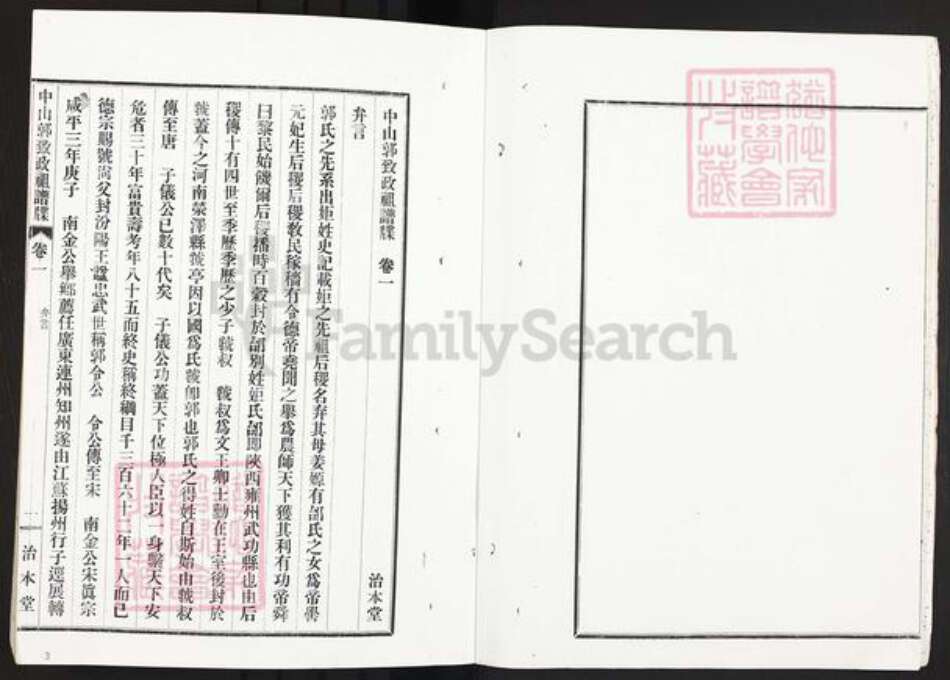 中山郭致政祖譜牒 卷一
弁言 治本堂
郭氏之先系出姬姓史記載姬之先祖后稷名弃其母姜嫄有邰氏之女為帝嚳
元妃生后稷后稷教民稼穡有令德帝堯聞之舉為農師天下獲其利有功帝舜
曰黎民始饑爾后稷播時百穀封於邰別姓姬氏邰即陝西雍州武功縣也由后
稷傳十有四世至季歷季歷之少子虢叔 虢叔為文王卿士勳在王室後封於
虢蓋今之河南滎澤縣虢亭因以國為氏虢即郭也郭氏之得姓自斯始由虢叔
傳至唐 子儀公已數十代矣 子儀公功蓋天下位極人臣以一身繫天下安
危者三十年富貴壽考年八十五而終史稱終綱目千三百六十二年一人而已
德宗賜號尚父封汾陽王諡忠武世稱郭令公 令公傳至宋 南金公宋眞宗
咸平三年庚子 南金公舉鄉薦任廣東連州知州遂由江蘇揚州行子巡展轉
中山郭致政祖譜牒 卷一 弁言 一 治本堂
FamilySearch
3